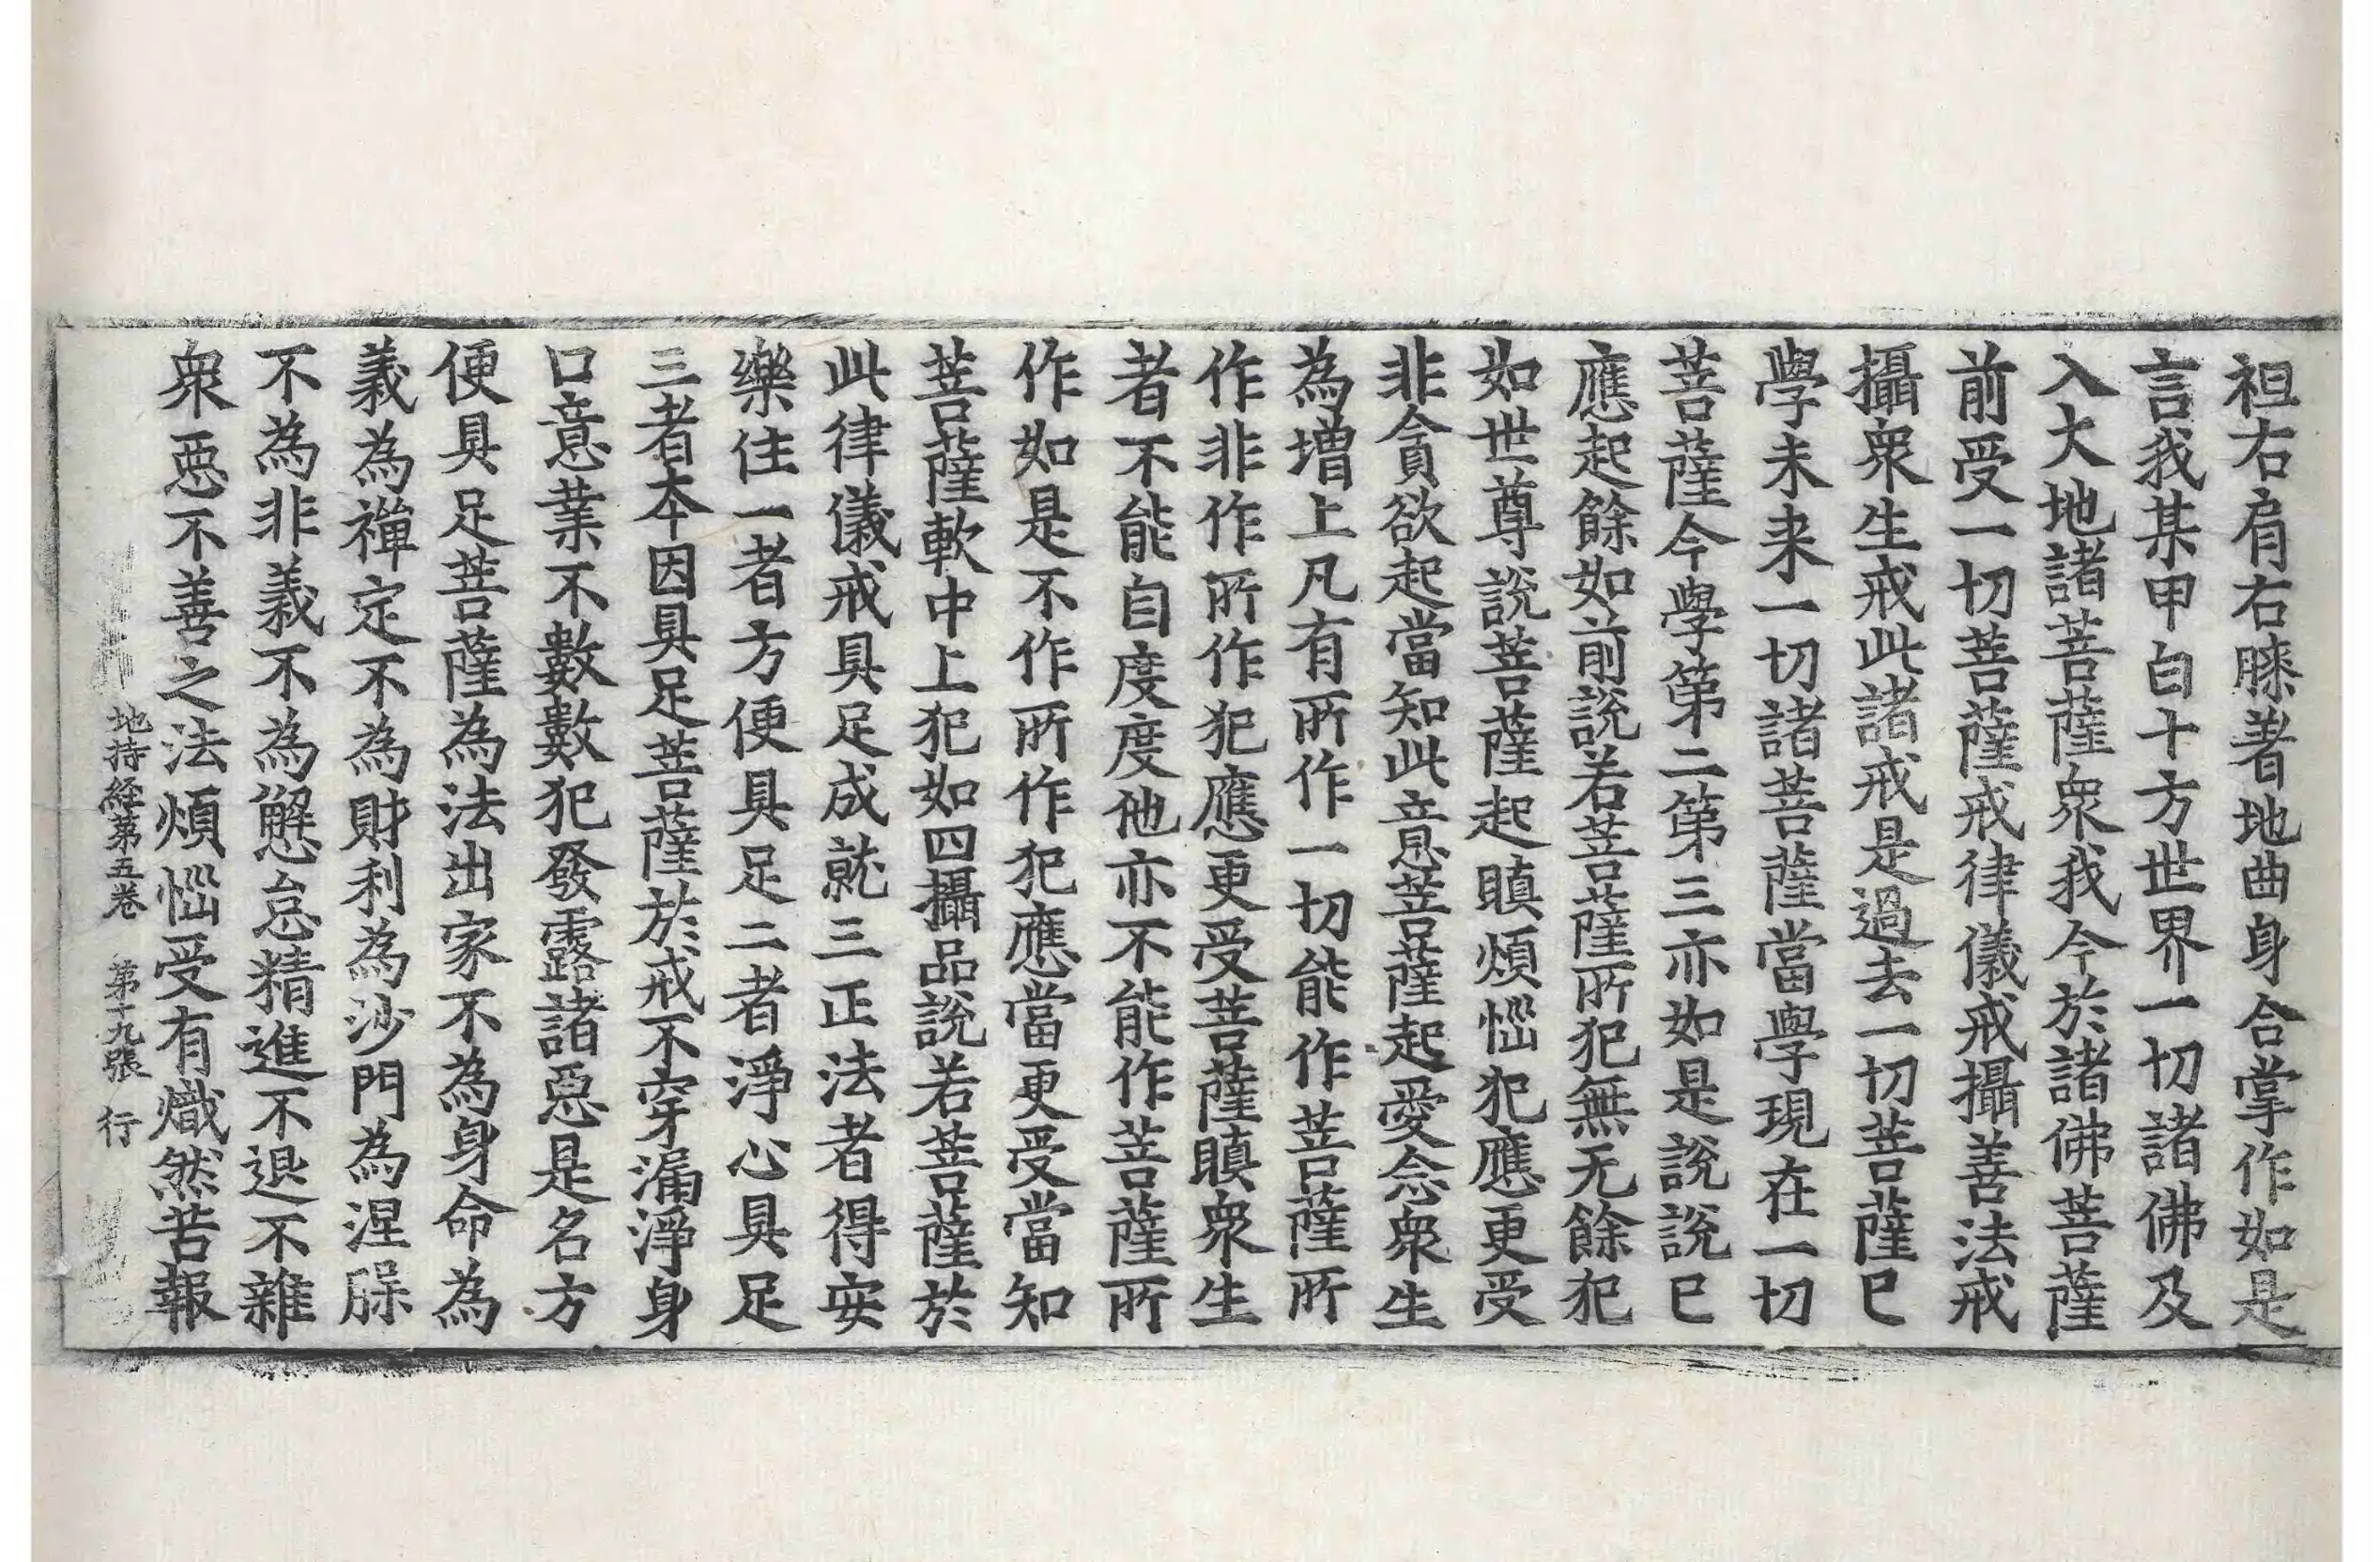 袒右肩右膝著地曲身合掌作如是
言我某甲白十方世界一切諸佛及
入大地諸菩薩衆我今於諸佛菩薩
前受一切菩薩戒律儀戒攝善法戒
攝衆生戒此諸戒是過去一切菩薩已
學未来一切諸菩薩當學現在一切
菩薩今學第二第三亦如是說說已
應起餘如前說若菩薩所犯無无餘犯
如世尊說菩薩起瞋煩惱犯應更受
非貪欲起當知此意菩薩起愛念衆生
為増上凡有所作一切能作菩薩所
作非作所作犯應更受菩薩瞋衆生
者不能自度度他亦不能作菩薩所
作如是不作所作犯應當更受當知
菩薩軟中上犯如四攝品說若菩薩於
此律儀戒具足成就三正法者得安
樂住一者方便具足二者淨心具足
三者本因具足菩薩於戒不穿漏淨身
口意業不數數犯發露諸惡是名方
便具足菩薩為法出家不為身命為
義為禪定不為財利為沙門為涅槃
不為非義不為懈怠精進不退不雜
衆惡不善之法煩惱受有熾然苦報
地持経第五卷 第十九張 行